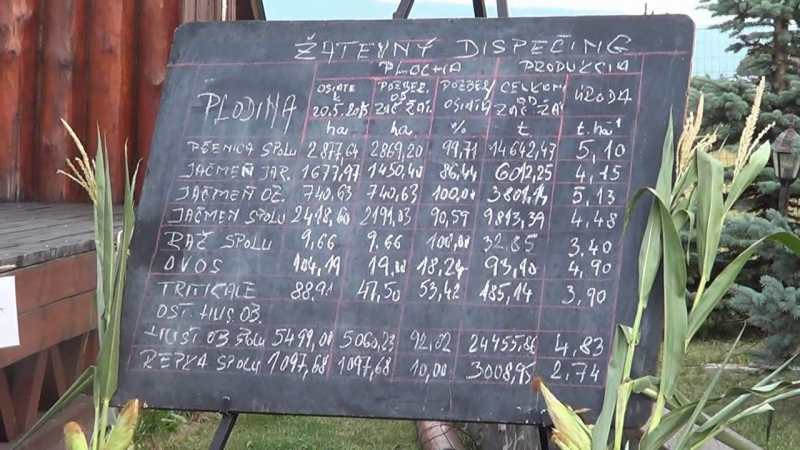 ŽATEVNÝ DISPEČING
PLOCHA PRODUKCIA
PLODINA OSIATE K 20.5. ha POZBER. OD ZAČ. ŽAT. ha POZBER. % CELKOM OD ZAČ. ŽAT. t ÚRODA t.ha
PŠENICA SPOLU 2877,64 2869,20 99,71 14642,47 5,10
JAČMEŇ JAR. 1677,97 1450,40 86,44 6012,25 4,15
JAČMEŇ OZ. 740,63 740,63 100,00 5,13
JAČMEŇ SPOLU 2418,60 2191,03 90,59 9813,39 4,48
RAŽ SPOLU 9,66 9,66 100,00 32,85 3,40
OVOS 104,19 19,00 18,24 93,10 4,90
TRITIKALE 88,91 47,50 53,42 185,14 3,90
OST. HUS. OB.
HUST. OB. SPOLU 5499,00 92,02 24455,86 4,83
REPKA SPOLU 1097,68 1097,68 10,00 3008,95 2,74